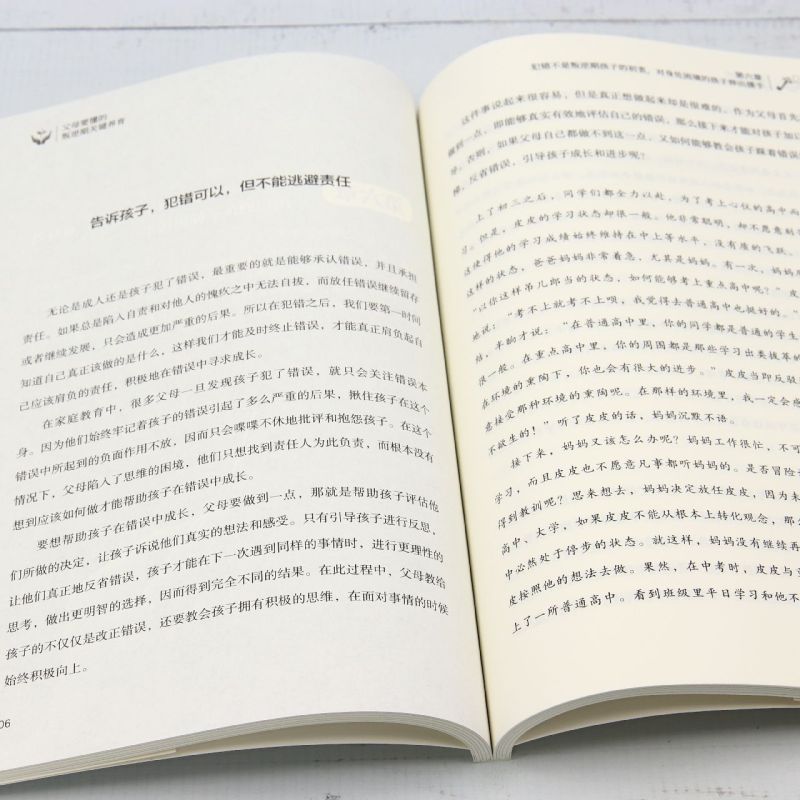 父母要懂的
叛逆期关键养育
告诉孩子，犯错可以，但不能逃避责任
无论是成人还是孩子犯了错误，最重要的就是能够承认错误，并且承担
责任。如果总是陷入自责和对他人的愧疚之中无法自拔，而放任错误继续留存
或者继续发展，只会造成更加严重的后果。所以在犯错之后，我们要第一时间
知道自己真正该做的是什么，这样我们才能及时终止错误，才能真正肩负起自
己应该肩负的责任，积极地在错误中寻求成长。
在家庭教育中，很多父母一旦发现孩子犯了错误，就只会关注错误本
身。因为他们始终牢记着孩子的错误引起了多么严重的后果，揪住孩子在这个
错误中所起到的负面作用不放，因而只会喋喋不休地批评和抱怨孩子。在这个
情况下，父母陷入了思维的困境，他们只想找到责任人为此负责，而根本没有
想到应该如何做才能帮助孩子在错误中成长。
要想帮助孩子在错误中成长，父母要做到一点，那就是帮助孩子评估他
们所做的决定，让孩子诉说他们真实的想法和感受。只有引导孩子进行反思，
让他们真正地反省错误，孩子才能在下一次遇到同样的事情时，进行更理性的
思考，做出更明智的选择，因而得到完全不同的结果。在此过程中，父母教给
孩子的不仅仅是改正错误，还要教会孩子拥有积极的思维，在面对事情的时候
始终积极向上。
06
第六章
犯错不是叛逆期孩子的初衷，对身处困境的孩子伸出援手
这件事说起来很容易，但是真正想做起来却是很难的。作为父母首先
做到一点，即能够真实有效地评估自己的错误，那么接下来才能对孩子加以
导。否则，如果父母自己都做不到这一点，又如何能够教会孩子踩着错误的
梯，反省错误，引导孩子成长和进步呢？
上了初三之后，同学们都全力以赴，为了考上心仪的高中而
习。但是，皮皮的学习状态却很一般。他非常聪明，却不愿意刻
这使得他的学习成绩始终维持在中上等水平，没有质的飞跃。
这样的状态，爸爸妈妈非常着急，尤其是妈妈。有一次，妈妈
“以你这样吊儿郎当的状态，如何能够考上重点高中呢？”皮
地说：“考不上就考不上呗，我觉得去普通高中也挺好的。”
结，半晌才说：“在普通高中里，你的同学都是普通的学生
很一般。在重点高中里，你的周围都是那些学习出类拔萃的
在环境的熏陶下，你也会有很大的进步。”皮皮当即反驳
意接受那种环境的熏陶呢。在那样的环境里，我一定会感
不欲生的！”听了皮皮的话，妈妈沉默不语。
接下来，妈妈又该怎么办呢？妈妈工作很忙，不可
学习，而且皮皮也不愿意凡事都听妈妈的。是否冒险
得到教训呢？思来想去，妈妈决定放任皮皮，因为未
高中、大学，如果皮皮不能从根本上转化观念，那
中必然处于停步的状态。就这样，妈妈没有继续再
皮按照他的想法去做。果然，在中考时，皮皮与
上了一所普通高中。看到班级里平日学习和他不